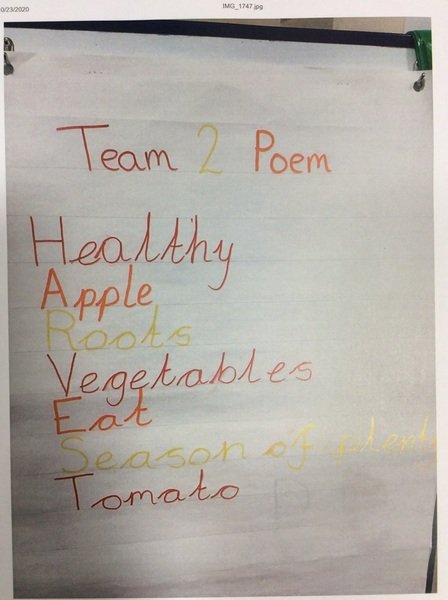 0/23/2020 IMG_1747.jpg
Team 2 Poem
Healthy
Apple
Roots
Vegetables
Eat
Season of plenty
Tomato